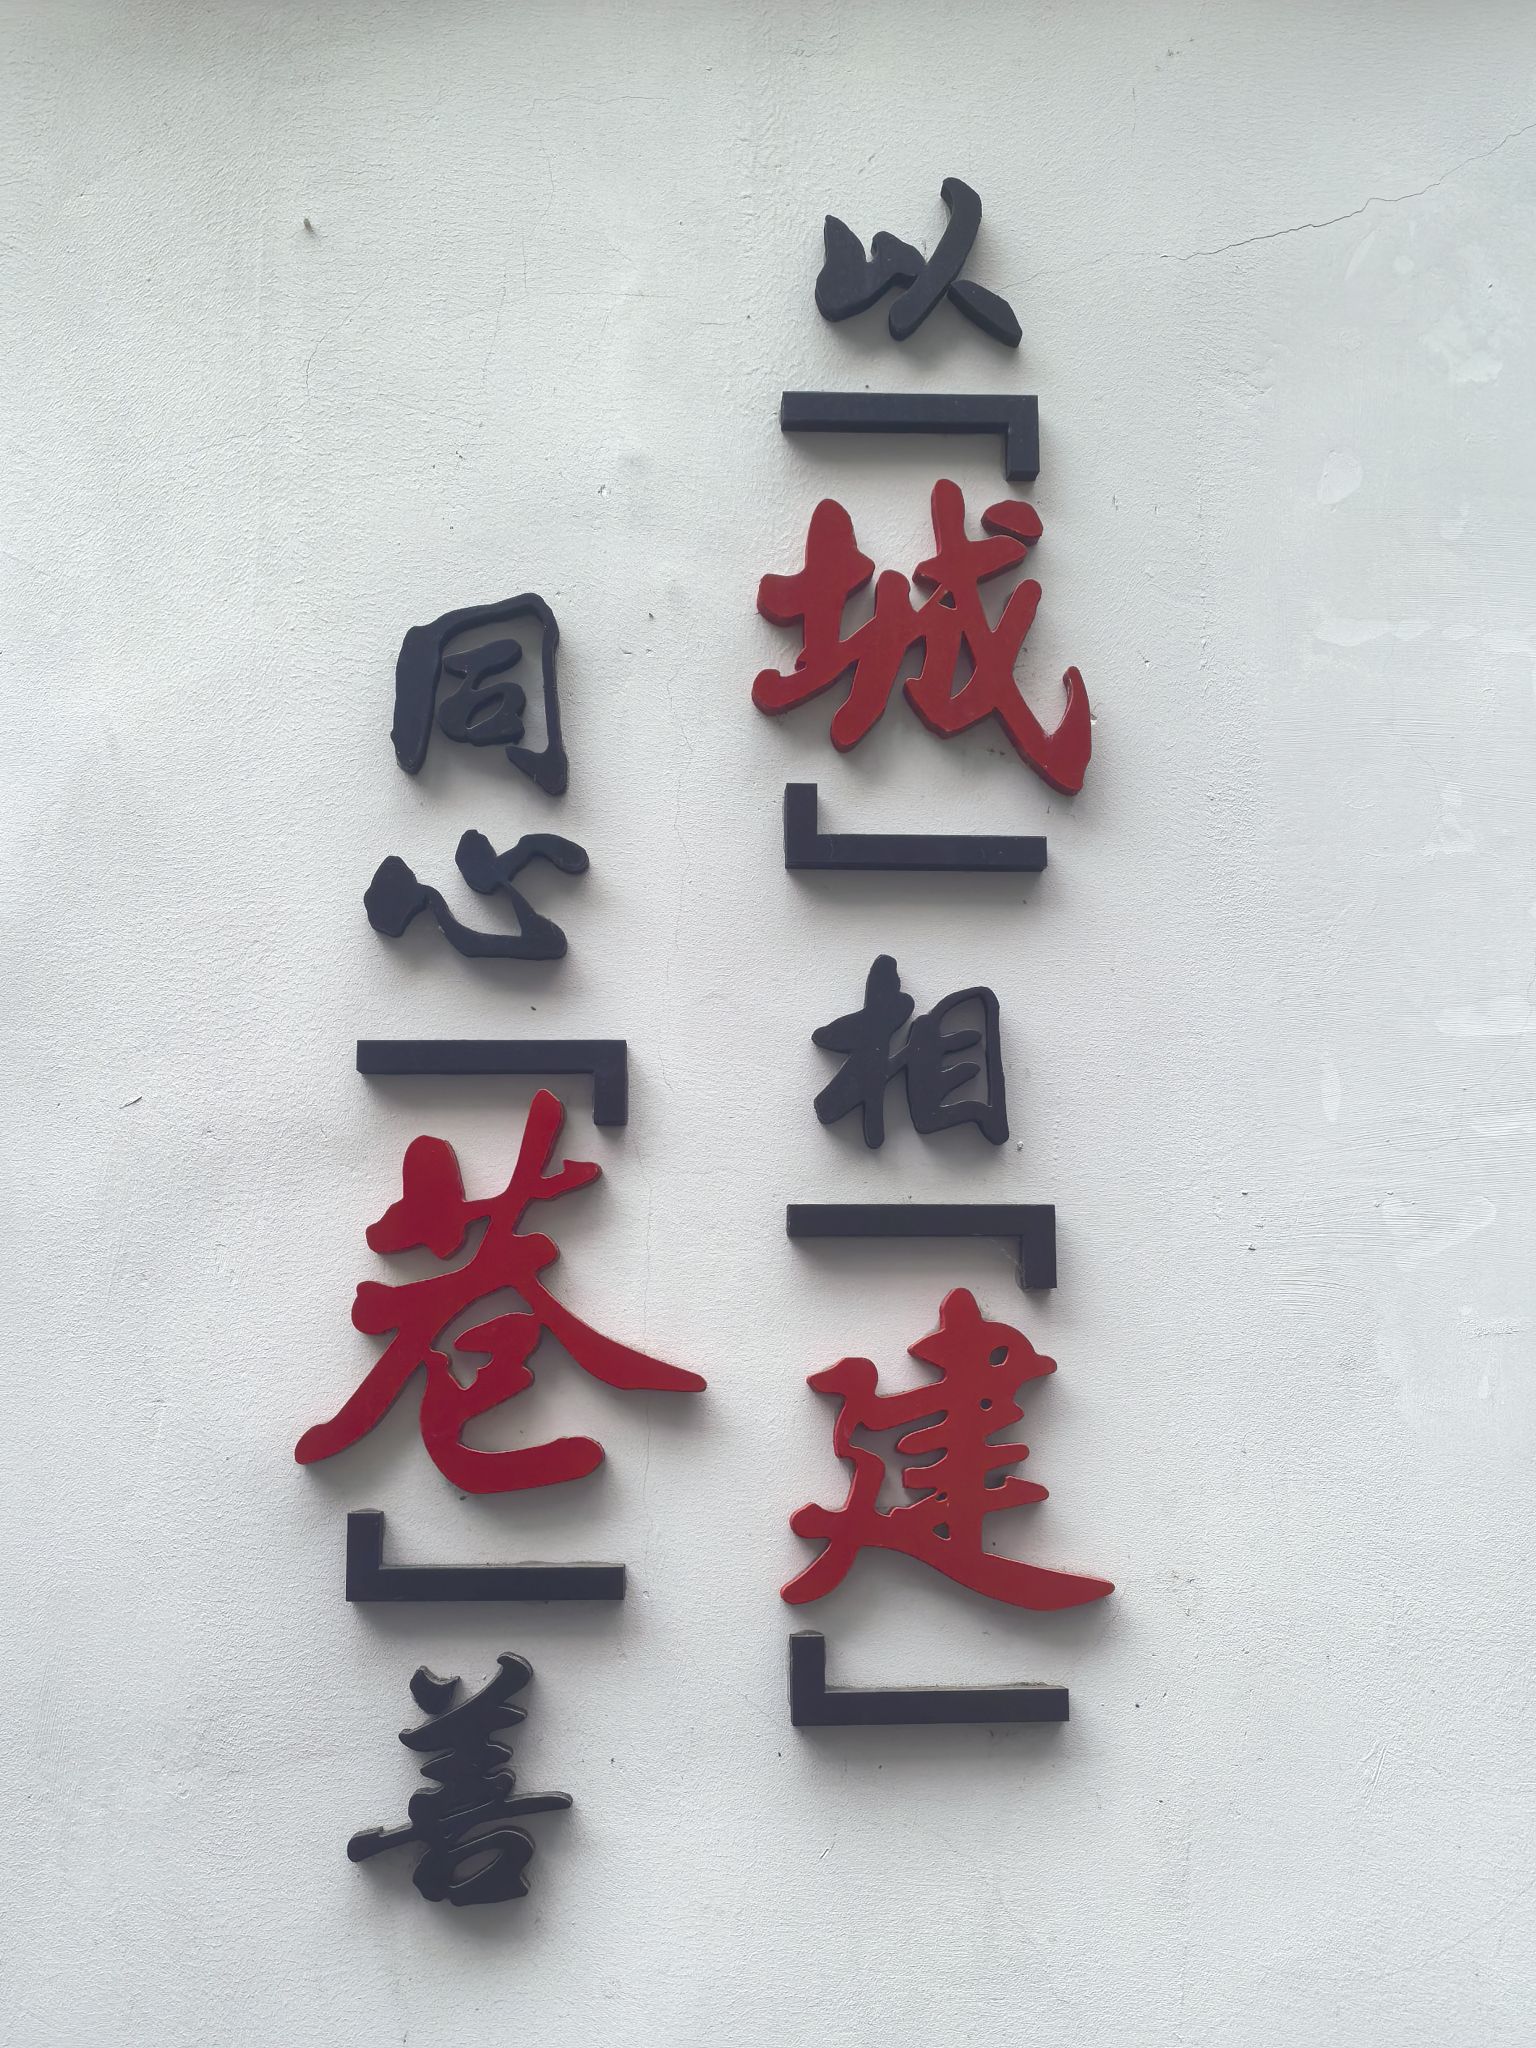 以「城」相「建」
同心「巷」善